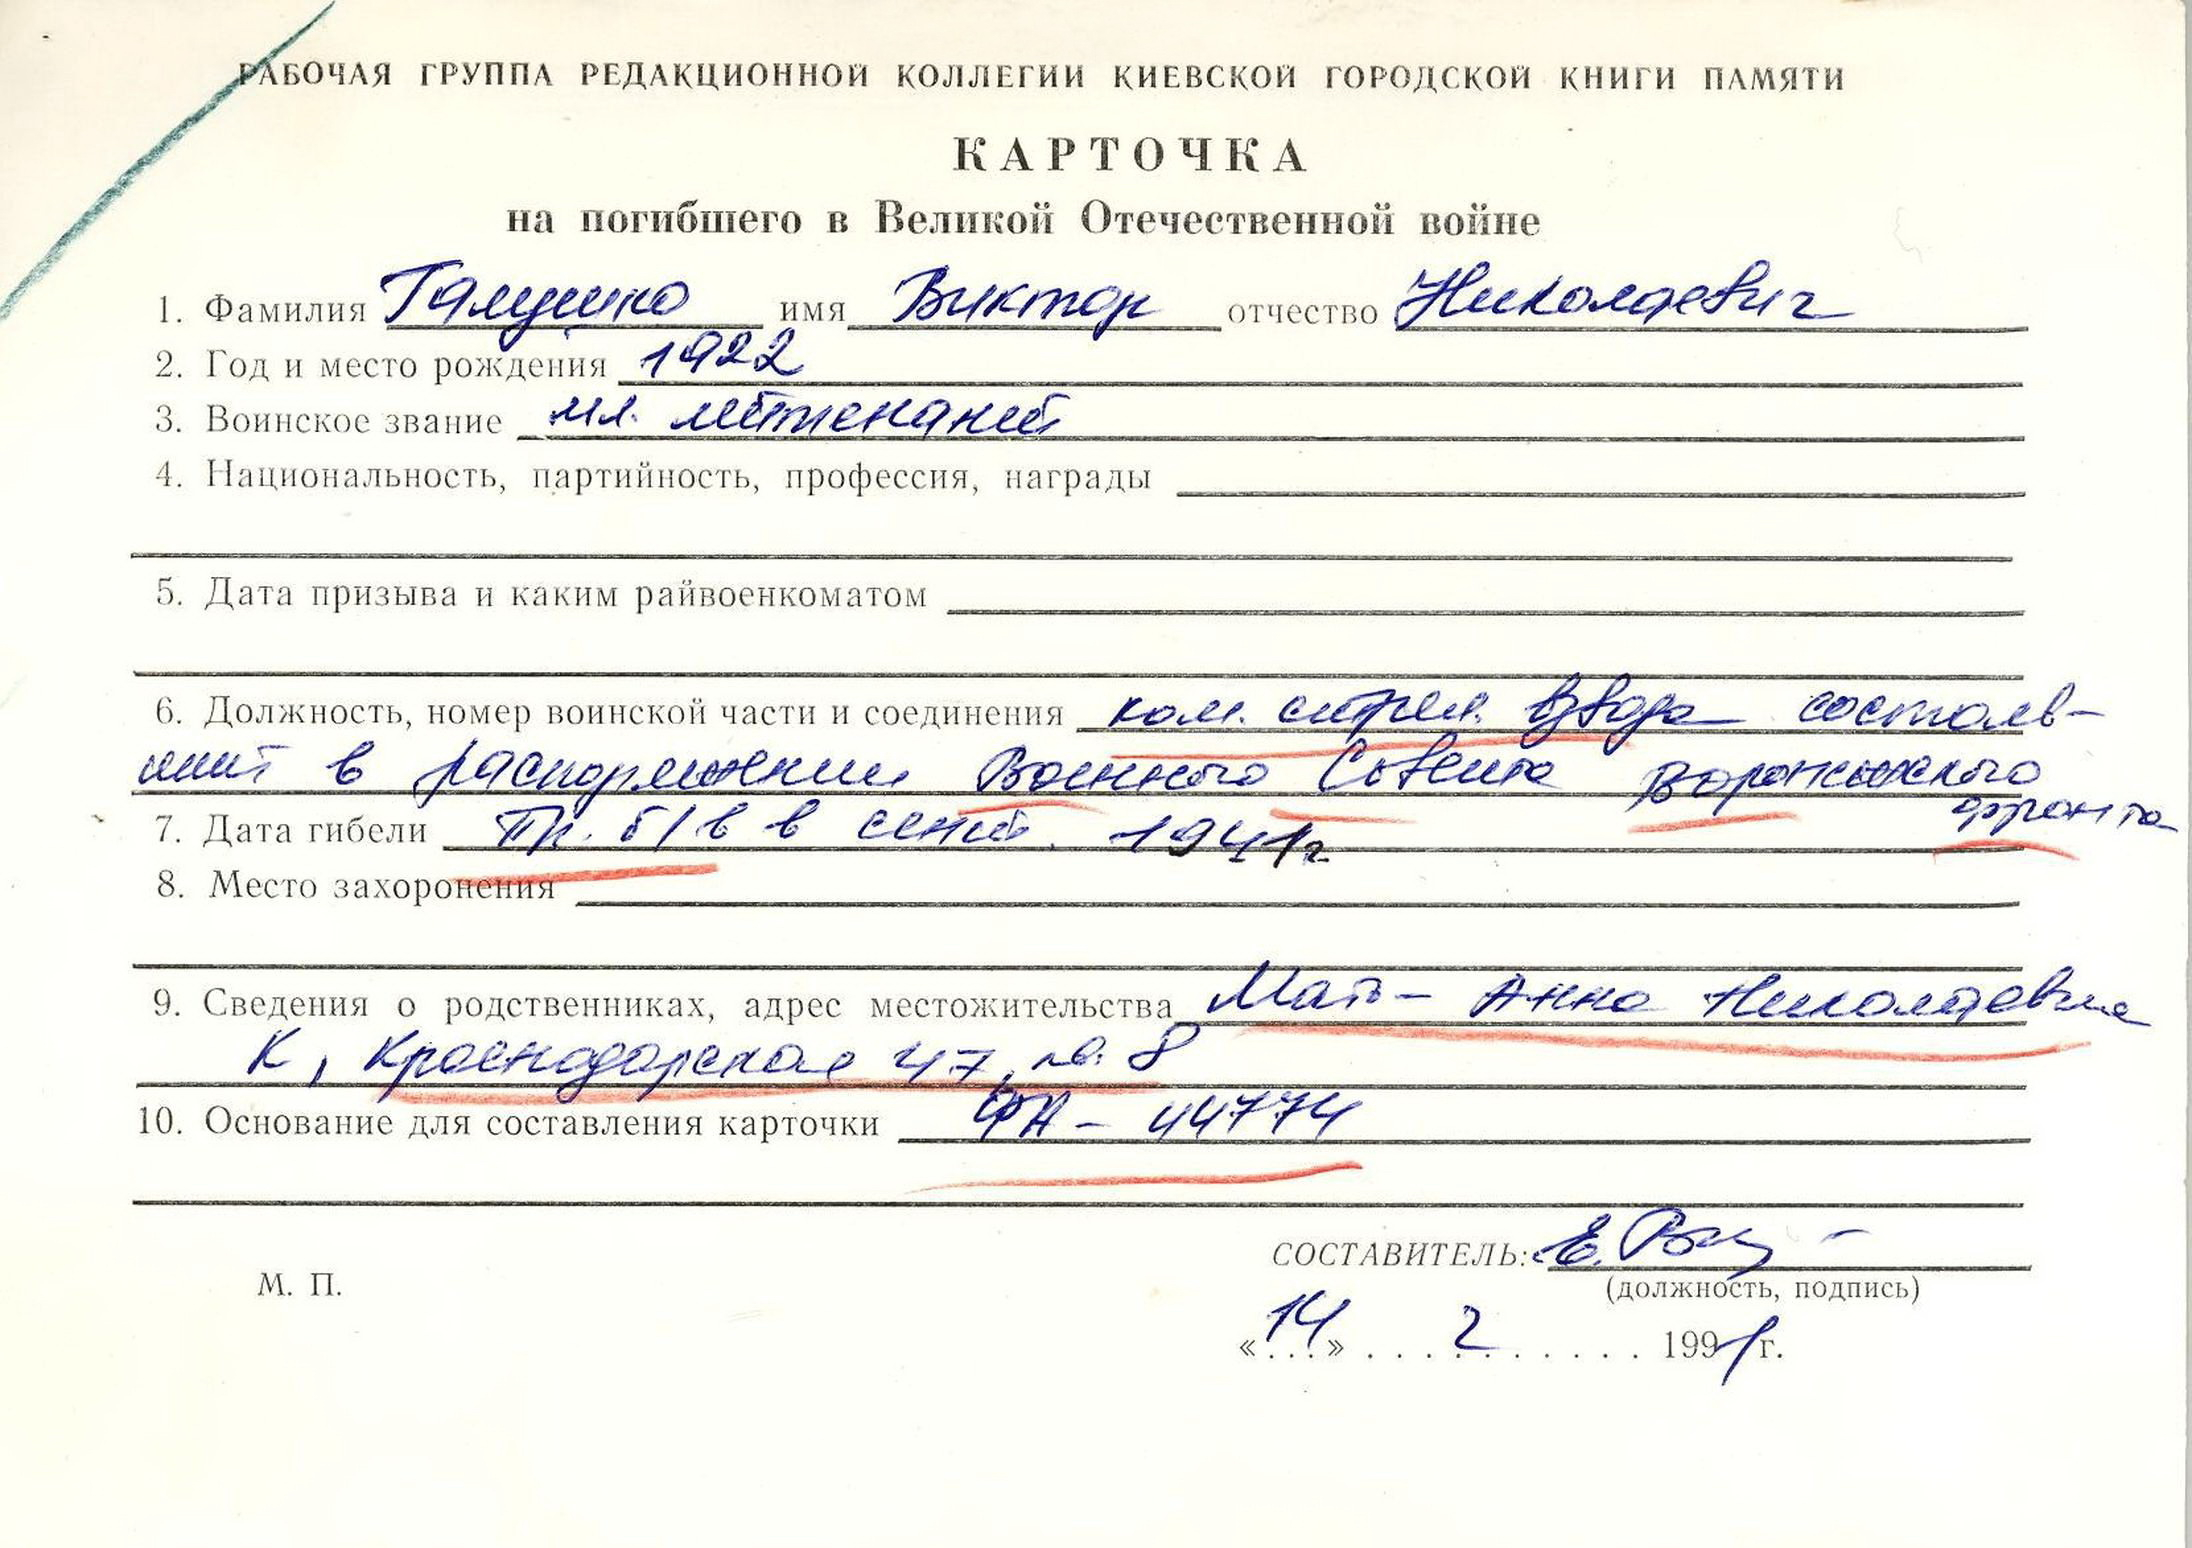 РАБОЧАЯ ГРУППА РЕДАКЦИОННОЙ КОЛЛЕГИИ КИЕВСКОЙ ГОРОДСКОЙ КНИГИ ПАМЯТИ
КАРТОЧКА
на погибшего в Великой Отечественной войне
1. Фамилия Галушко имя Виктор отчество Николаевич
2. Год и место рождения 1922
3. Воинское звание мл. лейтенант
4. Национальность, партийность, профессия, награды
5. Дата призыва и каким райвоенкоматом
6. Должность, номер воинской части и соединения ком. стрел. взвода состояв-
ший в распоряжении Военного Совета Воронежского
фронта
7. Дата гибели Пр. б/в в сент. 1941г
8. Место захоронения
9. Сведения о родственниках, адрес местожительства Мать – Анна Николаевна
К, Краснодарская 47, кв. 8
10. Основание для составления карточки ФА – 44774
СОСТАВИТЕЛЬ: Е.
М. П.
(должность, подпись)
«14» 2 1991 г.